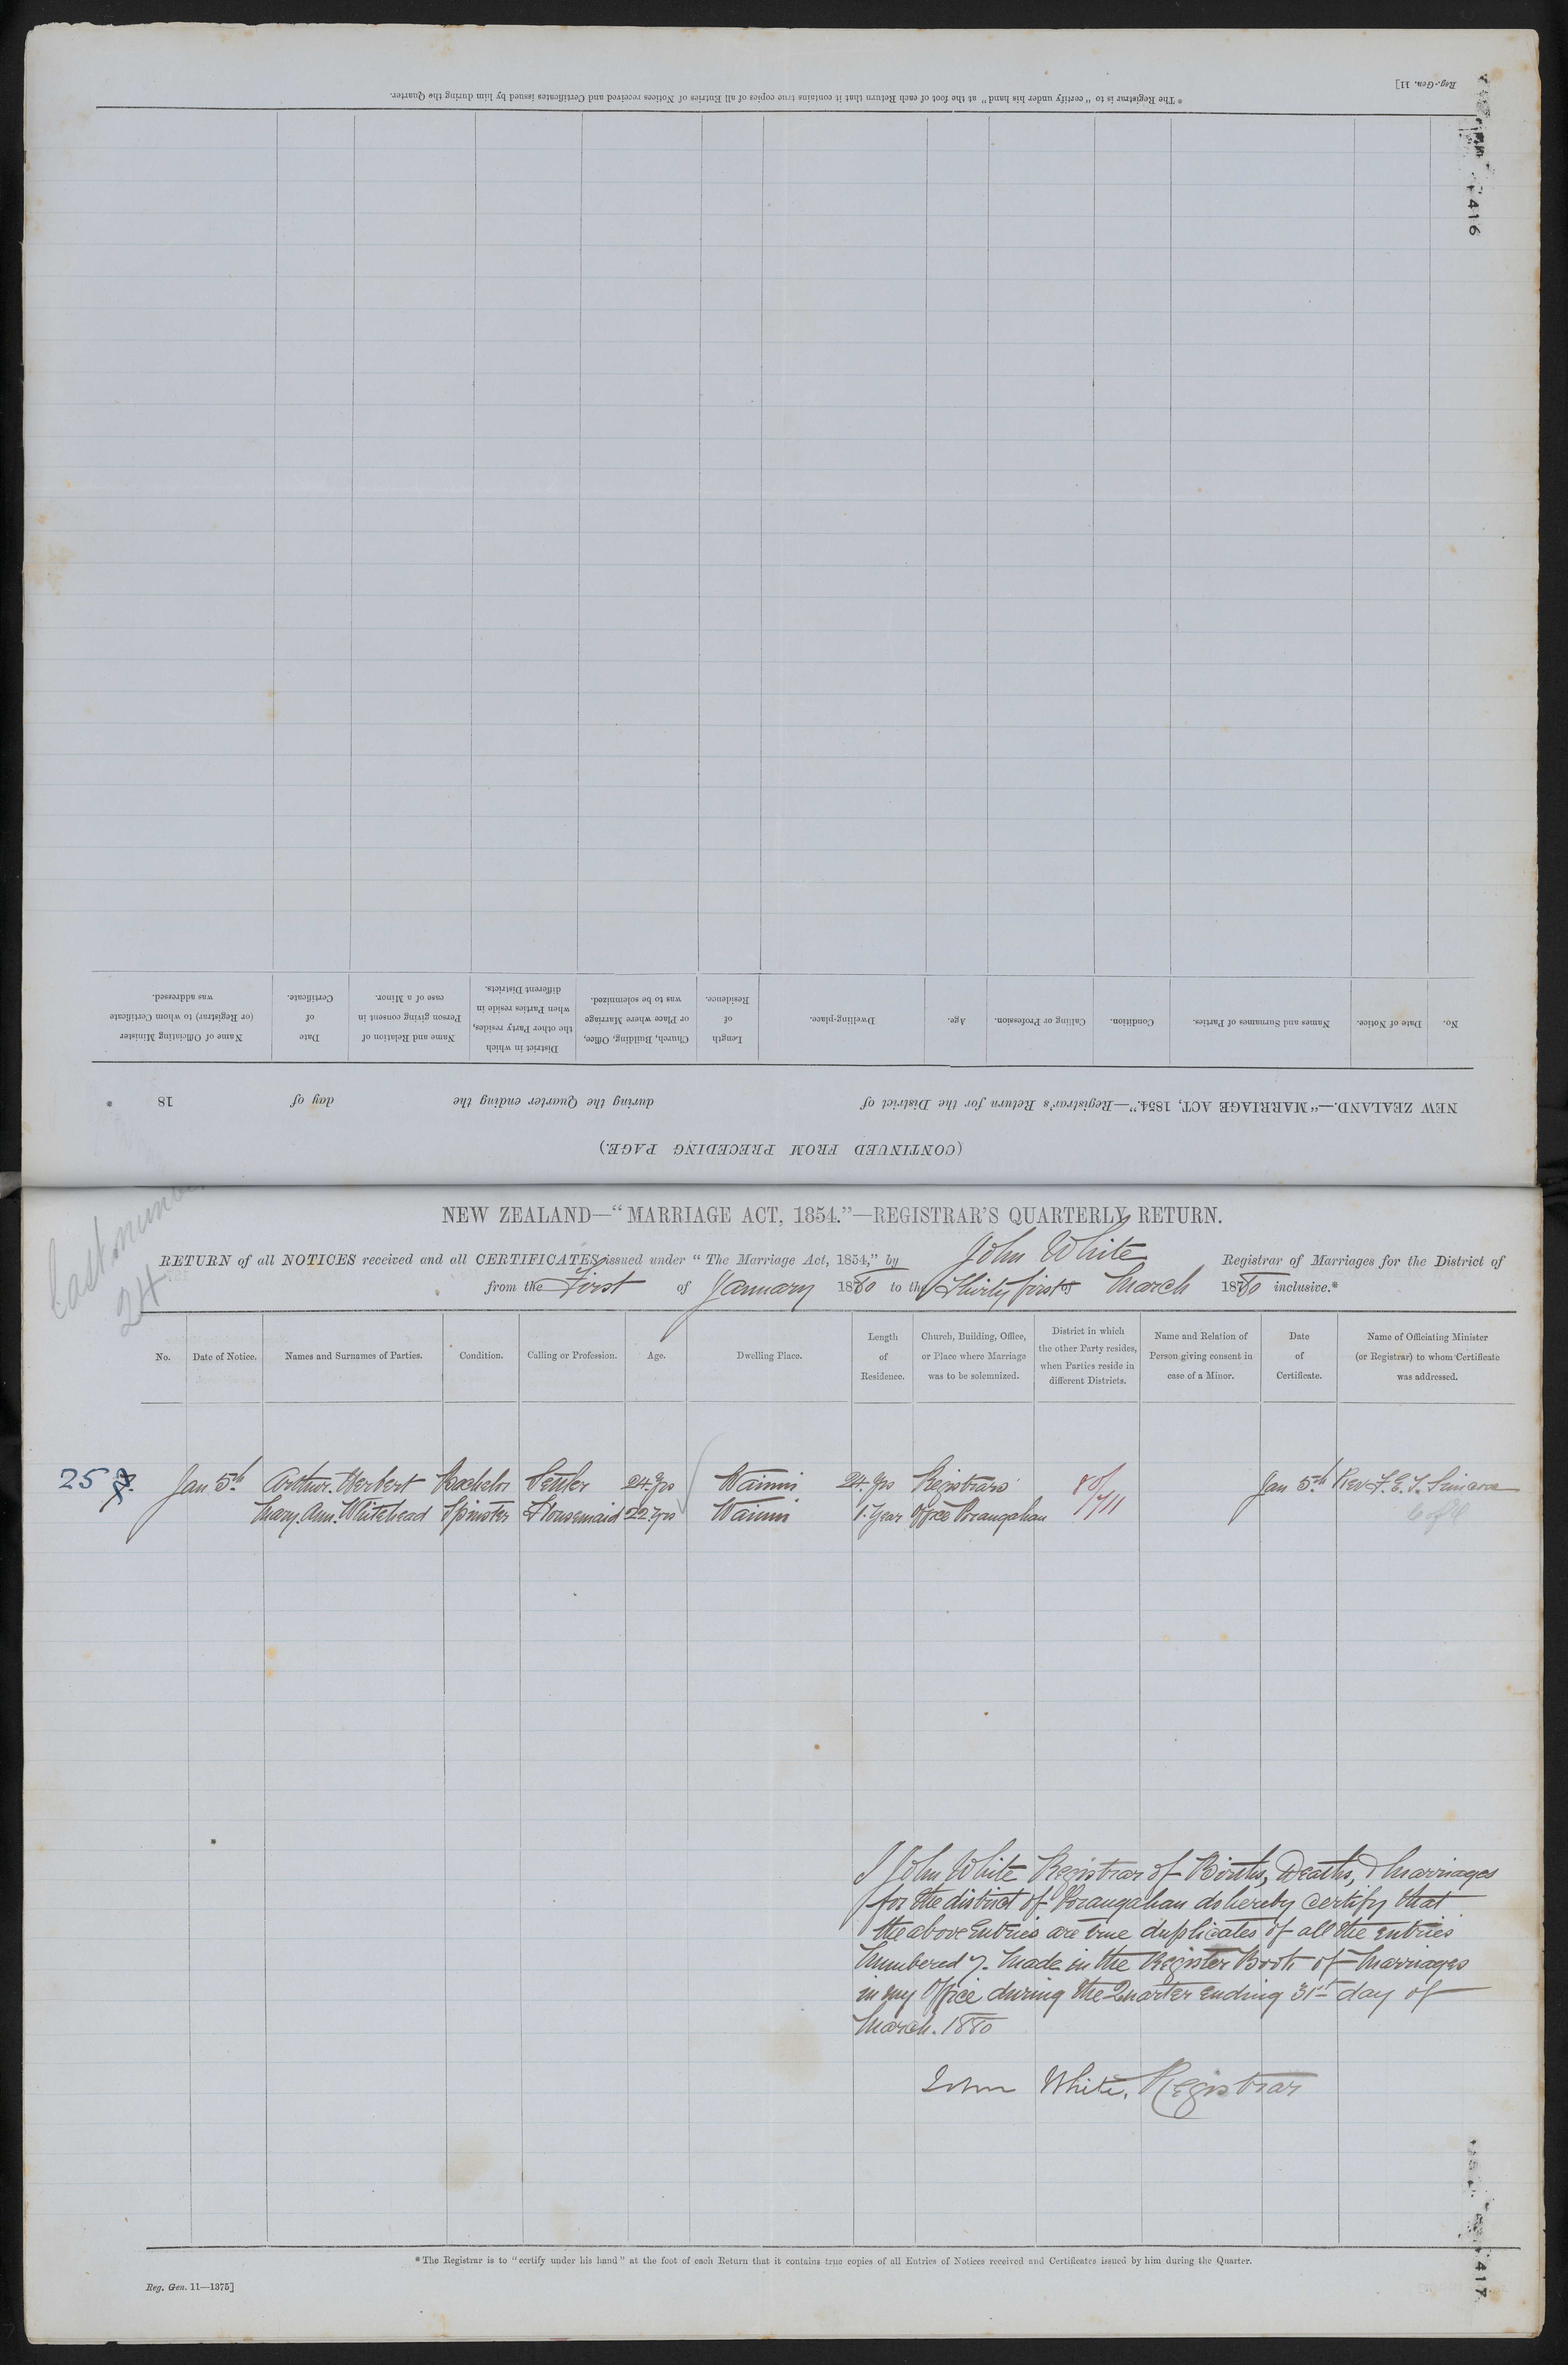 * The Registrar is to "certify under his hand" at the foot of each Return that it contains true copies of all Entries of Notices received and Certificates issued by him during the Quarter.
Reg.-Gen. 11]
416
(CONTINUED FROM PRECEDING PAGE.)
NEW ZEALAND.—"MARRIAGE ACT, 1854."—Registrar's Return for the District of during the Quarter ending the day of 18 *
No. Date of Notice. Names and Surnames of Parties. Condition. Calling or Profession. Age. Dwelling-place. Length of Residence. Church, Building, Office, or Place where Marriage was to be solemnized. District in which the other Party resides, when Parties reside in different Districts. Name and Relation of Person giving consent in case of a Minor. Date of Certificate. Name of Officiating Minister (or Registrar) to whom Certificate was addressed.
Last number
24
NEW ZEALAND—"MARRIAGE ACT, 1854."—REGISTRAR'S QUARTERLY RETURN.
RETURN of all NOTICES received and all CERTIFICATES issued under "The Marriage Act, 1854," by John White Registrar of Marriages for the District of
from the First of January 1880 to the Thirty first of March 1880 inclusive.*
No. Date of Notice. Names and Surnames of Parties. Condition. Calling or Profession. Age. Dwelling Place. Length of Residence. Church, Building, Office, or Place where Marriage was to be solemnized. District in which the other Party resides, when Parties reside in different Districts. Name and Relation of Person giving consent in case of a Minor. Date of Certificate. Name of Officiating Minister (or Registrar) to whom Certificate was addressed.
25 Jan 5th Arthur Herbert Bachelor Settler 24 yrs Wainui 24 yrs Registrars 80/ Jan 5th Rev F. E. T.
Mary Ann Whitehead Spinster Housemaid 22 yrs Wainui 1 Year Office Porangahau 1711 C of E
I John White Registrar of Births, Deaths, & Marriages
for the district of Porangahau do hereby certify that
the above Entries are true duplicates of all the entries
Numbered 7. Made in the Register Book of Marriages
in my Office during the Quarter ending 31st day of
March. 1880
John White, Registrar
* The Registrar is to "certify under his hand" at the foot of each Return that it contains true copies of all Entries of Notices received and Certificates issued by him during the Quarter.
Reg. Gen. 11—1375]
417